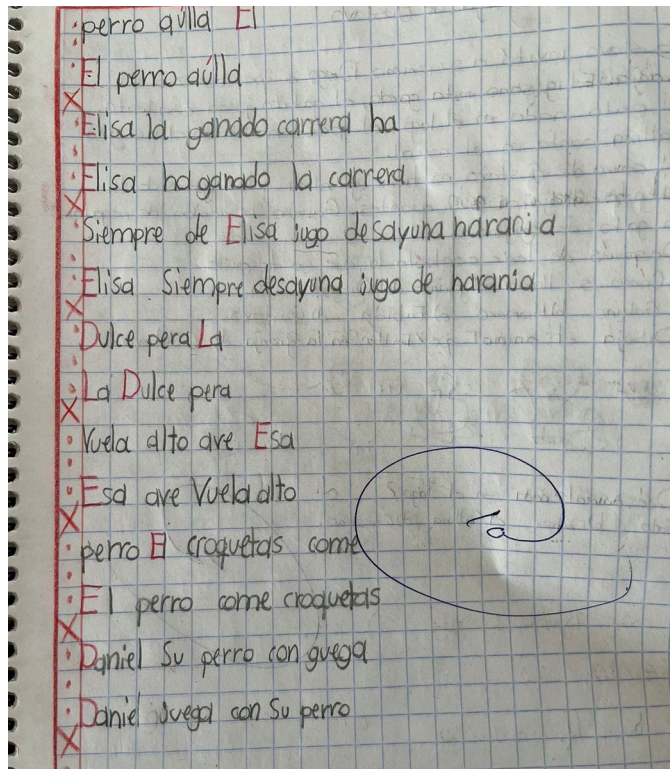 perro aúlla El
El perro aúlla
Elisa la ganado carrera ha
Elisa ha ganado la carrera
Siempre de Elisa jugo desayuna harania
Elisa Siempre desayuna jugo de harania
Dulce pera La
La Dulce pera
Vuela alto ave Esa
Esa ave Vuela alto
perro El croquetas come
El perro come croquetas
Daniel Su perro con guega
Daniel juega con Su perro